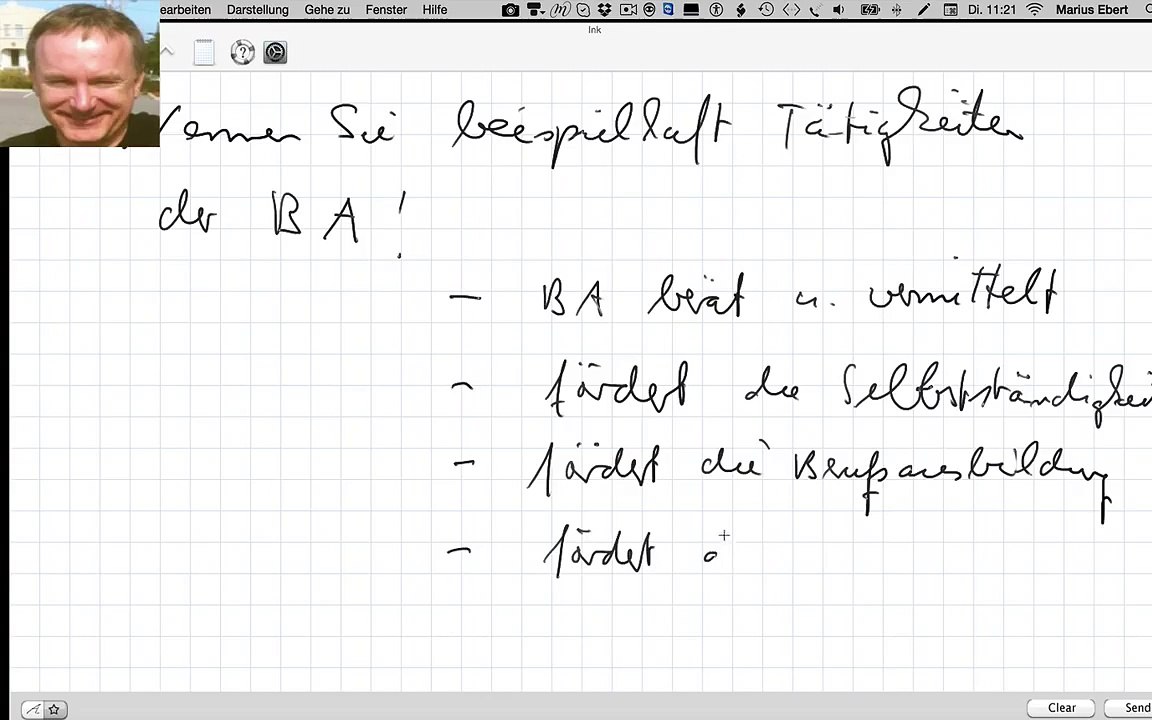 earbeiten Darstellung Gehe zu Fenster Hilfe Di. 11:21 Marius Ebert
Ink
ennen Sie beispielhaft Tätigkeiten
der BA!
- BA berät u. vermittelt
- fördert die Selbstständigkei
- fördert die Berufsausbildung
- fördert
Clear Send